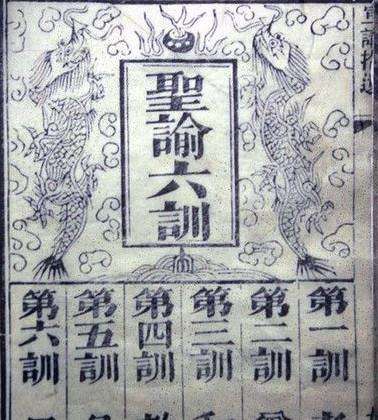 聖諭六訓
第一訓
第二訓
第三訓
第四訓
第五訓
第六訓